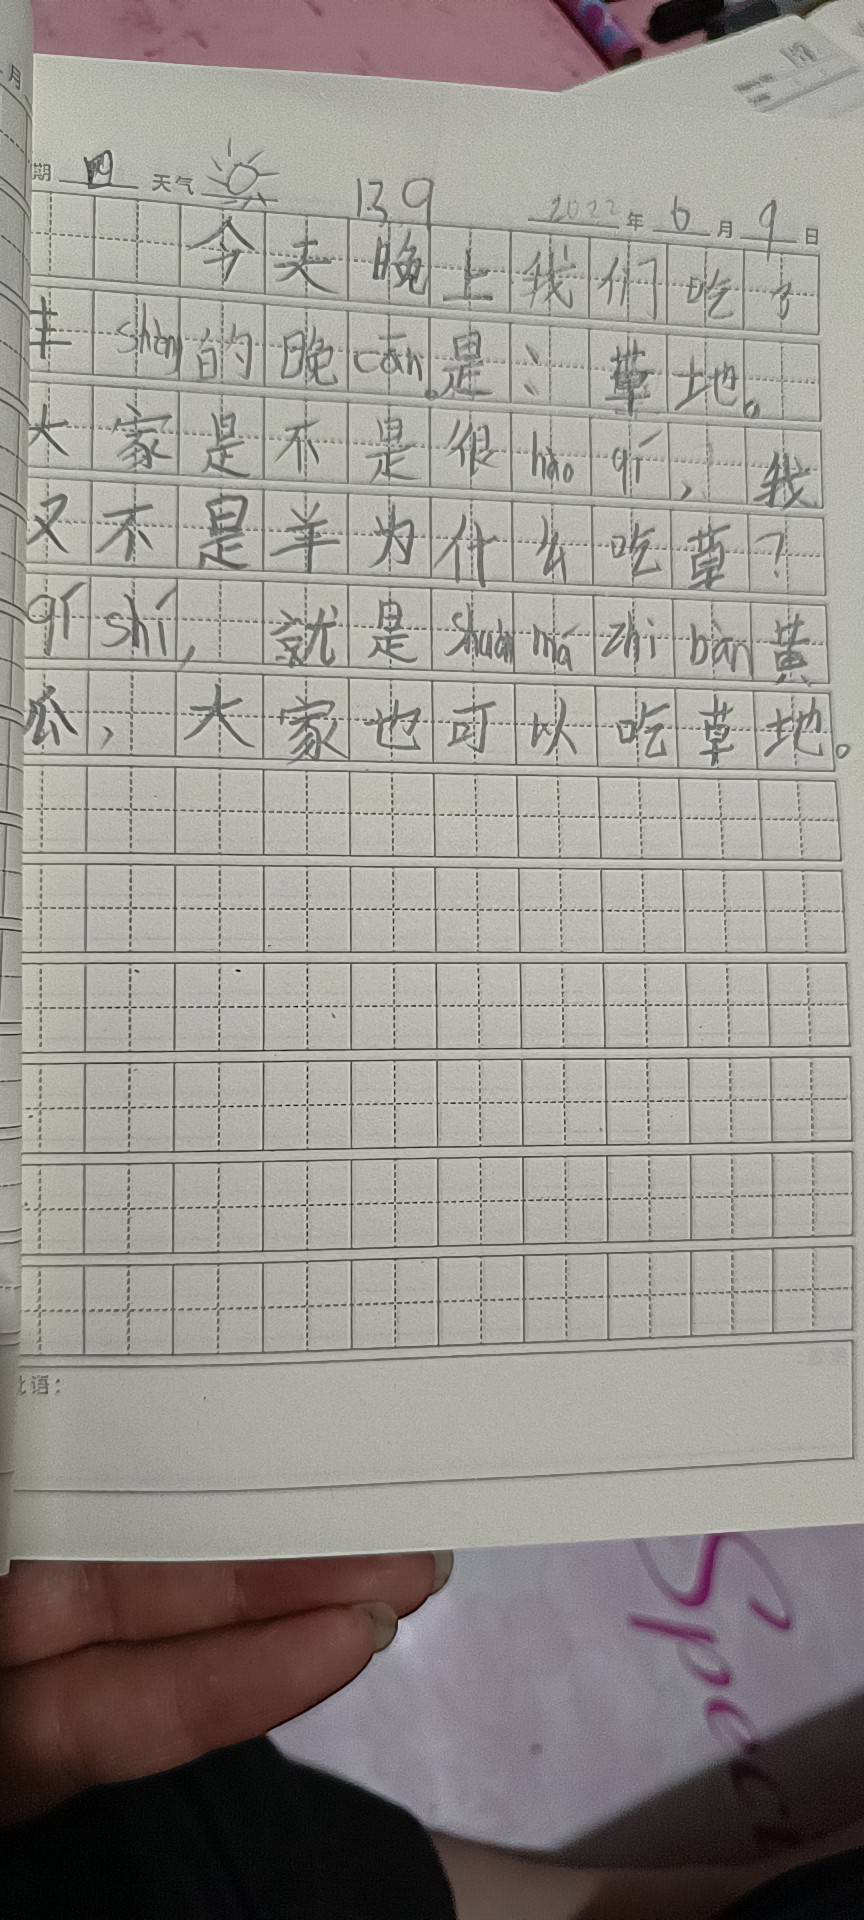 月
期 四 天气 139 2022 年 6 月 9 日
今天晚上我们吃了
丰shèng的晚cān。是：草地。
大家是不是很hào qí，我
又不是羊为什么吃草？
qí shí，就是shuàn má zhī bàn黄
瓜，大家也可以吃草地。
语：
Spec